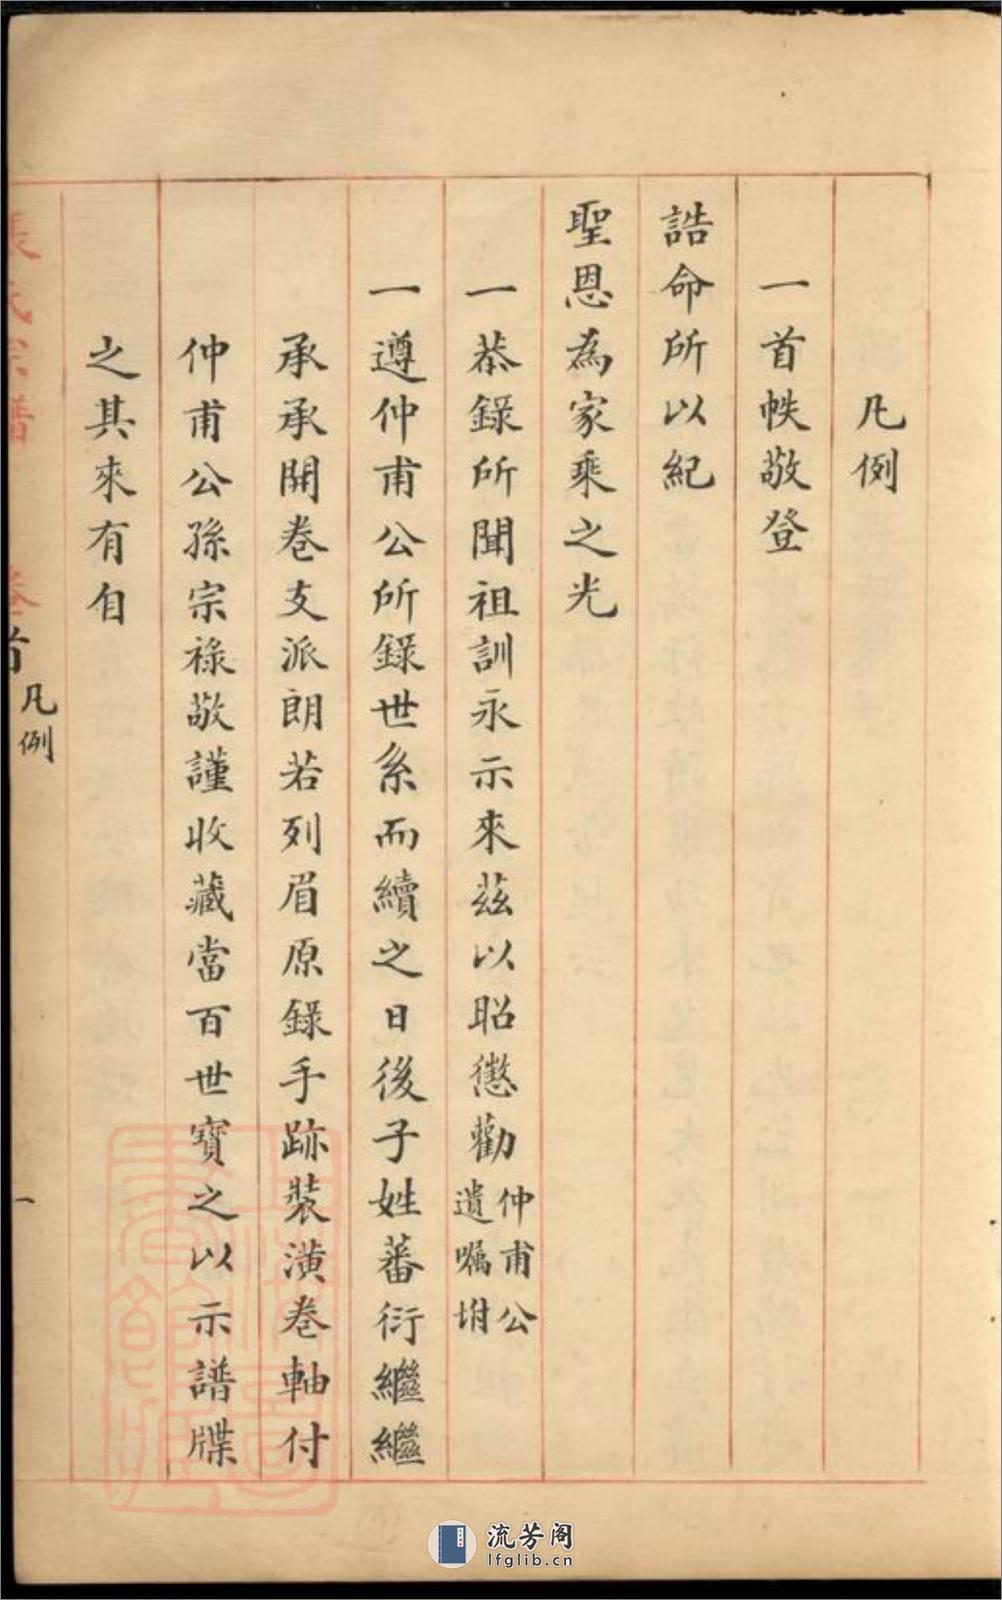 凡例
一首帙敬登
誥命所以紀
聖恩為家乘之光
一恭錄所聞祖訓永示來茲以昭懲勸仲甫公遺囑坿
一遵仲甫公所錄世系而續之日後子姓蕃衍繼繼
承承開卷支派朗若列眉原錄手跡裝潢卷軸付
仲甫公孫宗祿敬謹收藏當百世寶之以示譜牒
之其來有自
氏宗譜 卷首 凡例 一
流芳阁
lfglib.cn